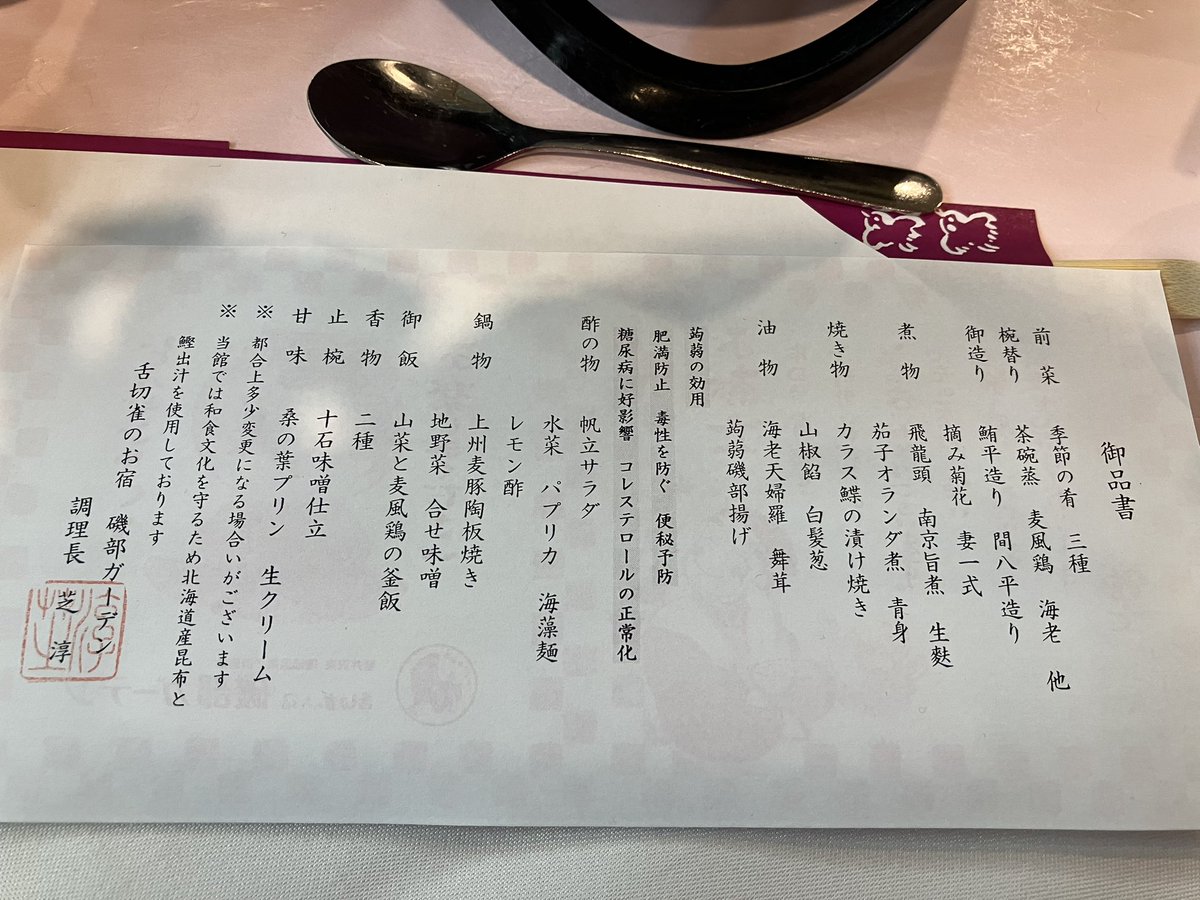 御品書
前菜　季節の肴　三種
椀替り　茶碗蒸　麦風鶏　海老　他
御造り　鮪平造り　間八平造り
摘み菊花　妻一式
煮物　飛龍頭　南京旨煮　生麩
茄子オランダ煮　青身
焼き物　カラス鰈の漬け焼き
山椒餡　白髪葱
油物　海老天婦羅　舞茸
蒟蒻磯部揚げ
蒟蒻の効用
肥満防止　毒性を防ぐ　便秘予防
糖尿病に好影響　コレステロールの正常化
酢の物　帆立サラダ
水菜　パプリカ　海藻麺
レモン酢
鍋物　上州麦豚陶板焼き
地野菜　合せ味噌
御飯　山菜と麦風鶏の釜飯
香物　二種
止椀　十石味噌仕立
甘味　桑の葉プリン　生クリーム
※　都合上多少変更になる場合いがございます
※　当館では和食文化を守るため北海道産昆布と
鰹出汁を使用しております
舌切雀のお宿　磯部ガーデン
調理長　芝　淳